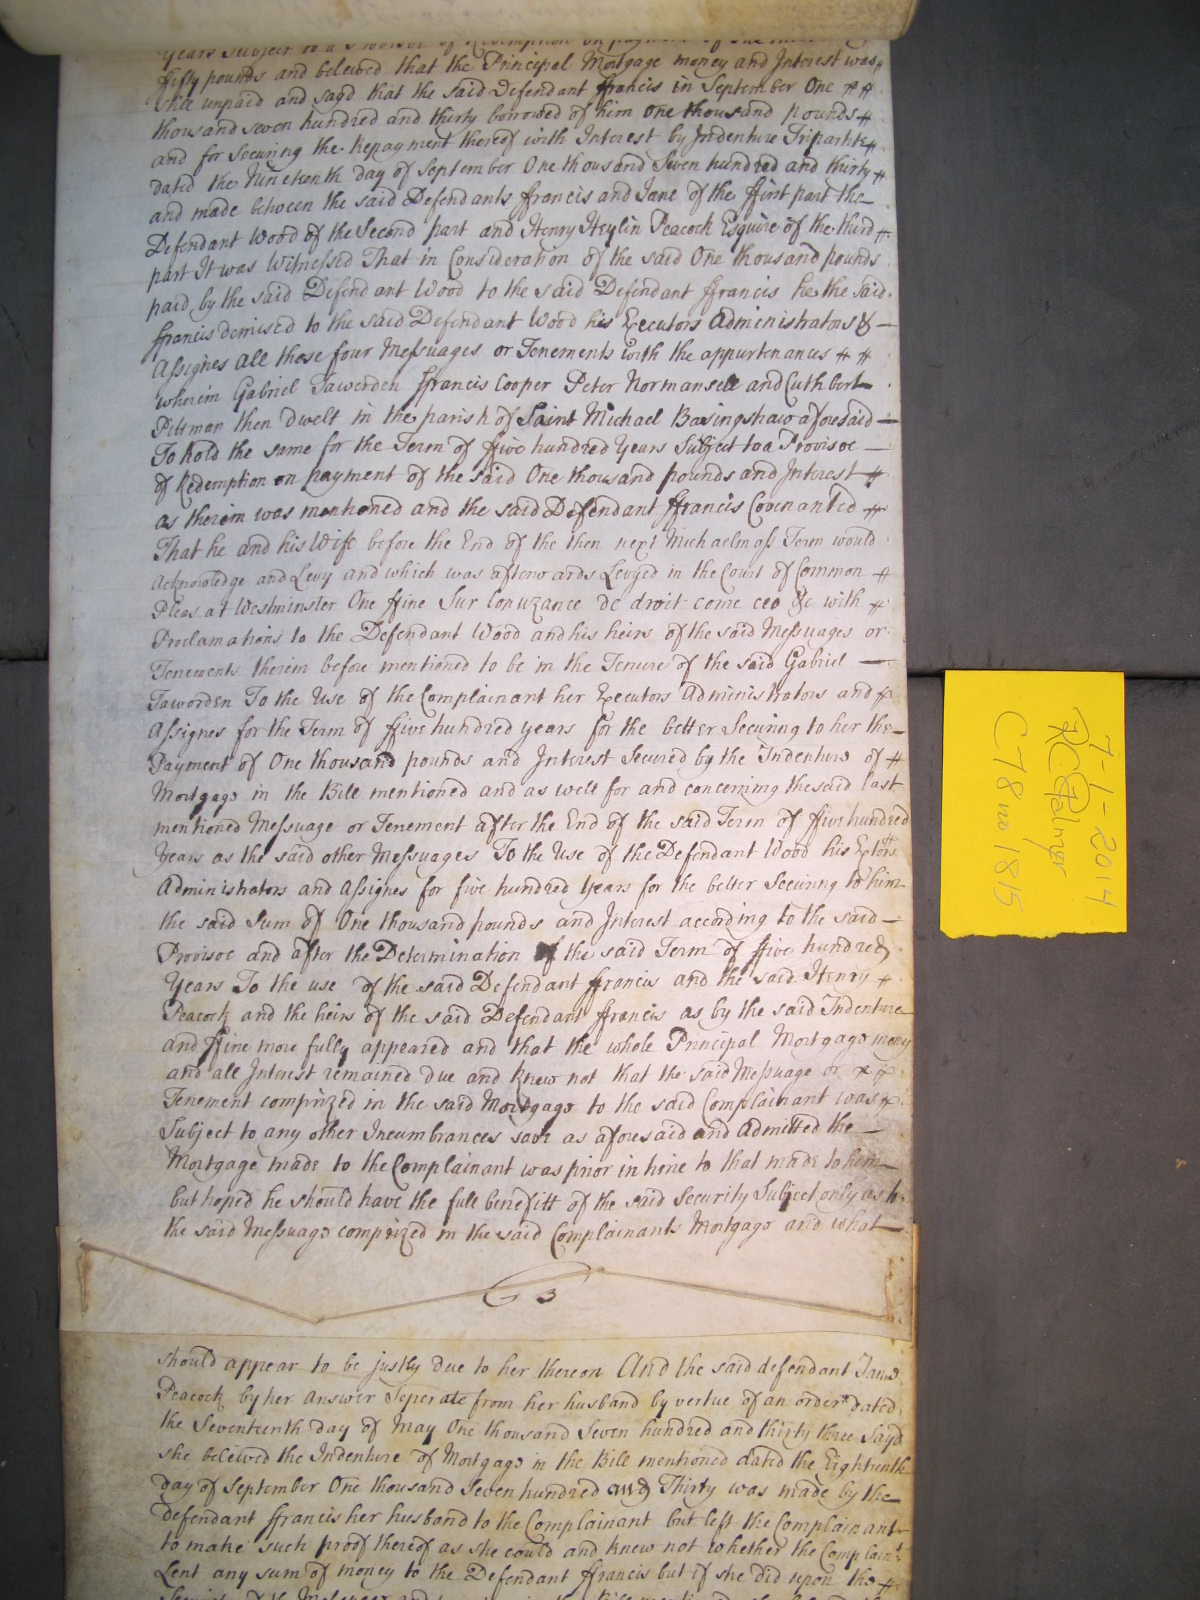 Years Subject to a Provisoe of Redemption on payment of the
ffifty pounds and beleived that the Principal Mortgage money and Interest was
Still unpaid and sayd that the said Defendant ffrancis in September One
thousand seven hundred and thirty borrowed of him one thousand pounds
and for Securing the Repayment thereof with Interest by Indenture Tripartite
dated the Nineteenth day of September One thousand Seven hundred and thirty
and made between the said Defendants ffrancis and Jane of the ffirst part the
Defendant Wood of the Second part and Henry Heylin Peacock Esquire of the third
part It was Witnessed That in Consideration of the said One thousand pounds
paid by the said Defendant Wood to the said Defendant ffrancis he the said
ffrancis demised to the said Defendant Wood his Executors Administrators &
Assignes all those four Messuages or Tenements with the appurtenances
wherein Gabriel Taworden ffrancis Cooper Peter Normansell and Cuthbert
Pittman then dwelt in the parish of Saint Michael Basingshaw aforesaid
To hold the same for the Term of ffive hundred Years Subject to a Provisoe
of Redemption on payment of the said One thousand pounds and Interest
as therein was mentioned and the said Defendant ffrancis Covenanted
That he and his Wife before the End of the then next Michaelmass Term would
Acknowledge and Levy and which was afterwards Levyed in the Court of Common
Pleas at Westminster One ffine Sur Conuzance de droit come ceo &c with
Proclamations to the Defendant Wood and his heirs of the said Messuages or
Tenements therein before mentioned to be in the Tenure of the said Gabriel
Taworden To the Use of the Complainant her Executors Administrators and
Assignes for the Term of ffive hundred years for the better Securing to her the
Payment of One thousand pounds and Interest Secured by the Indenture of
Mortgage in the Bill mentioned and as well for and concerning the said last
mentioned Messuage or Tenement after the End of the said Term of ffive hundred
Years as the said other Messuages To the Use of the Defendant Wood his Exto:rs
Administrators and Assignes for five hundred Years for the better Securing to him
the said Sum of One thousand pounds and Interest according to the said
Provisoe and after the Determination of the said Term of ffive hundred
Years To the use of the said Defendant ffrancis and the said Henry
Peacock and the heirs of the said Defendant ffrancis as by the said Indenture
and ffine more fully appeared and that the whole Principal Mortgage money
and all Interest remained due and knew not that the said Messuage or
Tenement comprized in the said Mortgage to the said Complainant was
Subject to any other Incumbrances save as aforesaid and admitted the
Mortgage made to the Complainant was prior in time to that made to him
but hoped he should have the full benefitt of the said Security Subject only as to
the said Messuage comprized in the said Complainants Mortgage and what
3
should appear to be justly due to her thereon And the said defendant Jane
Peacock by her answer Seperate from her husband by vertue of an order dated
the Seventeenth day of May One thousand Seven hundred and thirty three Sayd
she beleived the Indenture of Mortgage in the Bill mentioned dated the Eighteenth
day of September One thousand Seven hundred and Thirty was made by the
defendant ffrancis her husband to the Complainant but left the Complainant
to make such proof thereof as she could and knew not whether the Complain:t
Lent any sum of money to the Defendant ffrancis but if she did upon the
7-1-2014
RCPalmer
C78 no 1815